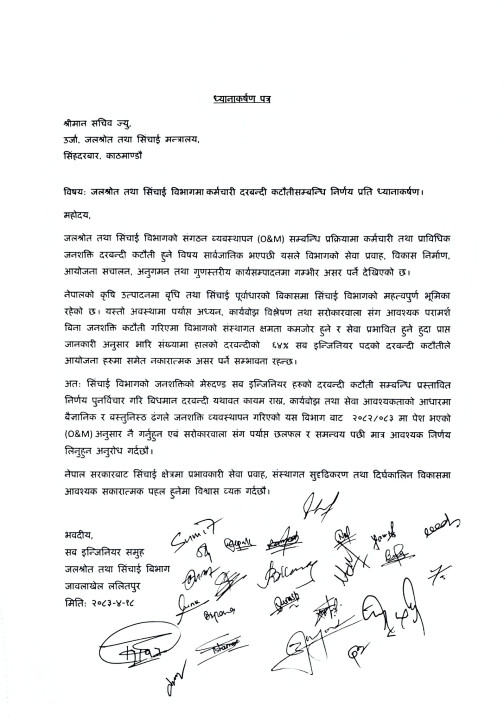 ध्यानाकर्षण पत्र
श्रीमान सचिव ज्यु,
उर्जा, जलश्रोत तथा सिंचाई मन्त्रालय,
सिंहदरबार, काठमाण्डौ
विषय: जलश्रोत तथा सिंचाई विभागमा कर्मचारी दरबन्दी कटौतीसम्बन्धि निर्णय प्रति ध्यानाकर्षण।
महोदय,
जलश्रोत तथा सिंचाई विभागको संगठन व्यवस्थापन (O&M) सम्बन्धि प्रक्रियामा कर्मचारी तथा प्राविधिक
जनशक्ति दरबन्दी कटौती हुने विषय सार्वजानिक भएपछी यसले विभागको सेवा प्रवाह, विकास निर्माण,
आयोजना सचालन, अनुगमन तथा गुणस्तरीय कार्यसम्पादनमा गम्भीर असर पर्ने देखिएको छ।
नेपालको कृषि उत्पादनमा वृधि तथा सिंचाई पूर्वाधारको विकासमा सिंचाई विभागको महत्वपुर्ण भूमिका
रहेको छ। यस्तो अवस्थामा पर्याप्त अध्यन, कार्यबोझ विश्लेषण तथा सरोकारवाला संग आवश्यक परामर्श
बिना जनशक्ति कटौती गरिएमा विभागको संस्थागत क्षमता कमजोर हुने र सेवा प्रभावित हुने हुदा प्राप्त
जानकारी अनुसार भारि संख्यामा हालको दरबन्दीको ६४% सब इन्जिनियर पदको दरबन्दी कटौतीले
आयोजना हरुमा समेत नकारात्मक असर पर्ने सम्भावना रहन्छ।
अत: सिंचाई विभागको जनशक्तिको मेरुदण्ड सब इन्जिनियर हरुको दरबन्दी कटौती सम्बन्धि प्रस्तावित
निर्णय पुनर्विचार गरि बिधमान दरबन्दी यथावत कायम राख्न, कार्यबोझ तथा सेवा आवश्यकताको आधारमा
बैज्ञानिक र वस्तुनिस्ठ ढंगले जनशक्ति व्यवस्थापन गरिएको यस विभाग बाट २०८२/०८३ मा पेश भएको
(O&M) अनुसार नै गर्नुहुन एबं सरोकारवाला संग पर्याप्त छलफल र समन्वय पछी मात्र आवश्यक निर्णय
लिनुहुन अनुरोध गर्दछौ।
नेपाल सरकारबाट सिंचाई क्षेत्रमा प्रभावकारी सेवा प्रवाह, संस्थागत सुदृढिकरण तथा दिर्घकालिन विकासमा
आवश्यक सकारात्मक पहल हुनेमा विश्वास व्यक्त गर्दछौ।
भवदीय,
सब इन्जिनियर समुह
जलश्रोत तथा सिंचाई बिभाग
जावलाखेल ललितपुर
मिति: २०८३-४-१८